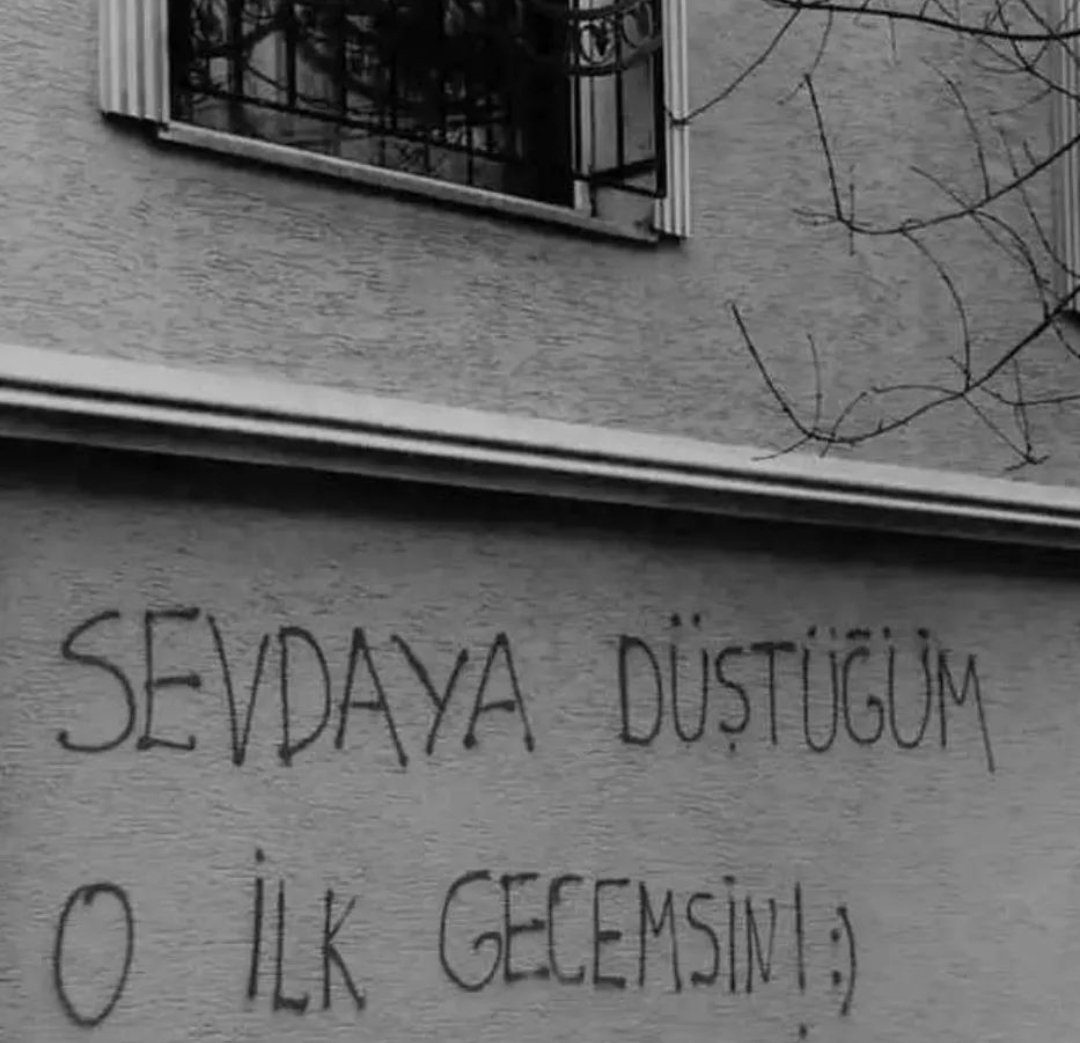 SEVDAYA DÜŞTÜĞÜM
O İLK GECEMSİN! :)